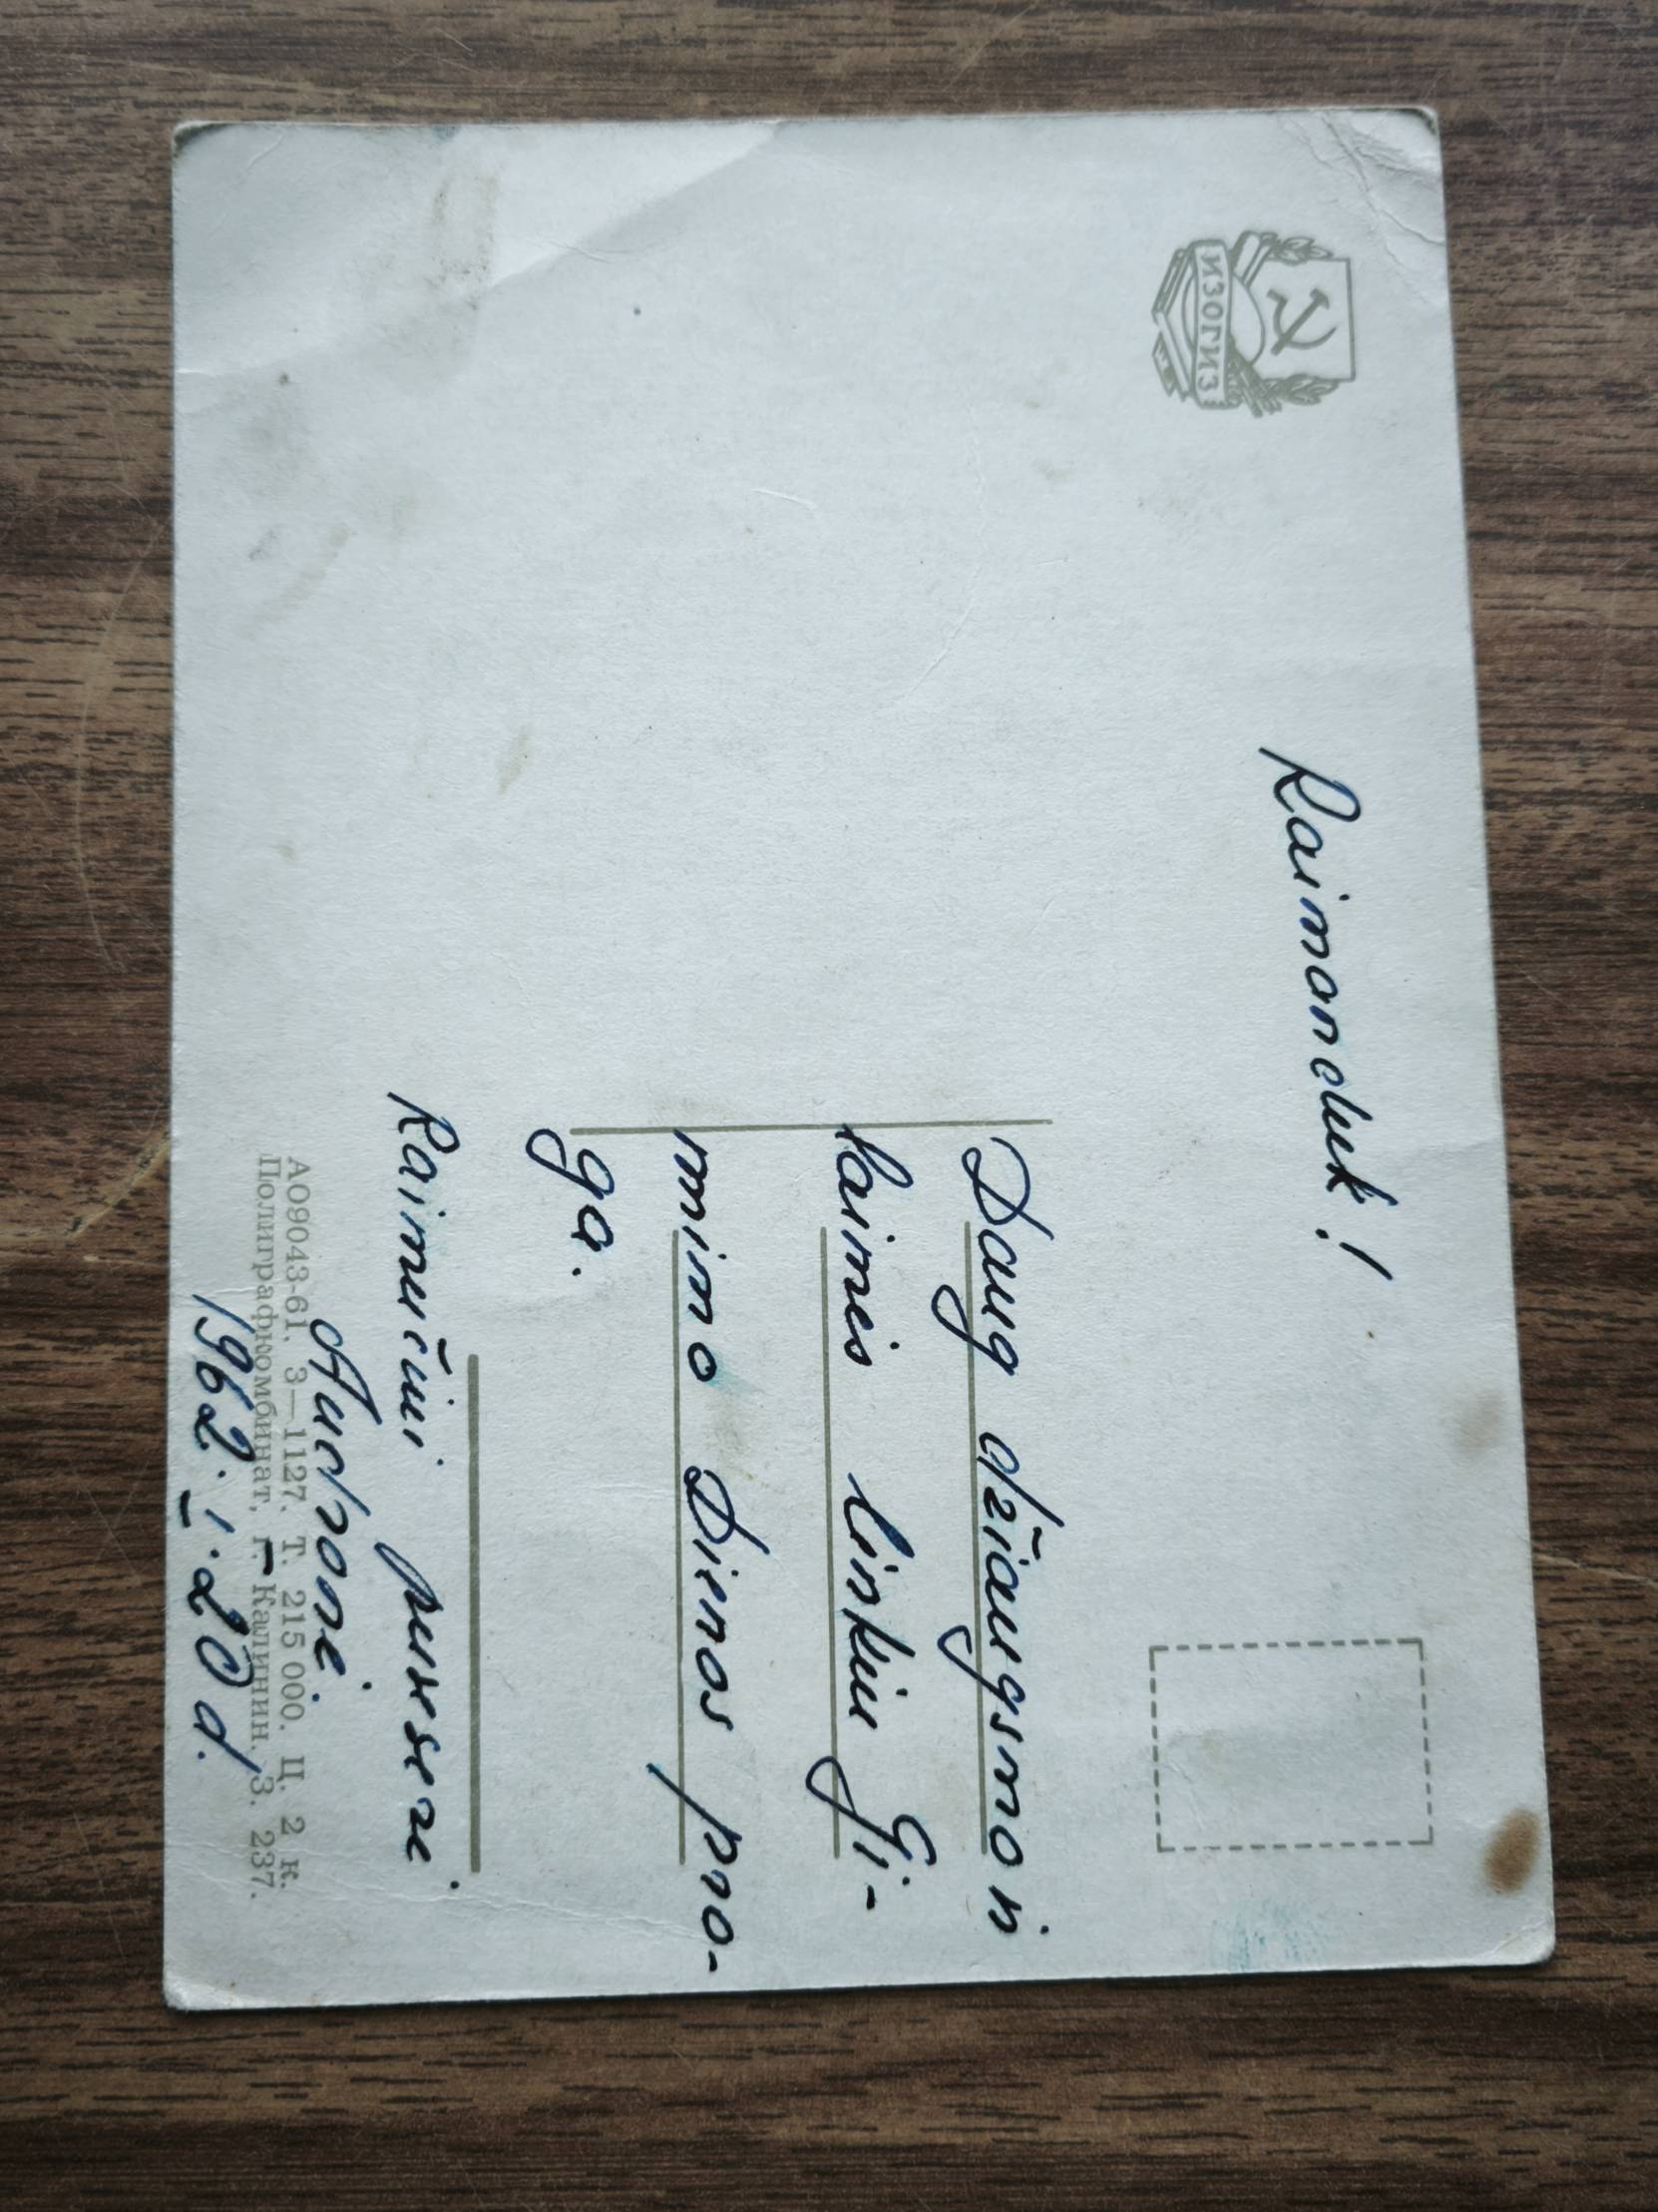 ИЗОГИЗ
Raimonduk!
Daug džiaugsmo ir
laimės linkiu Gi-
mimo Dienos pro-
ga.
Raimučiui pusseri
Aušronė.
1962. I. 20 d.
А09043-61. З—1127. Т. 215 000. Ц. 2 к.
Полиграфкомбинат, г. Калинин. З. 237.